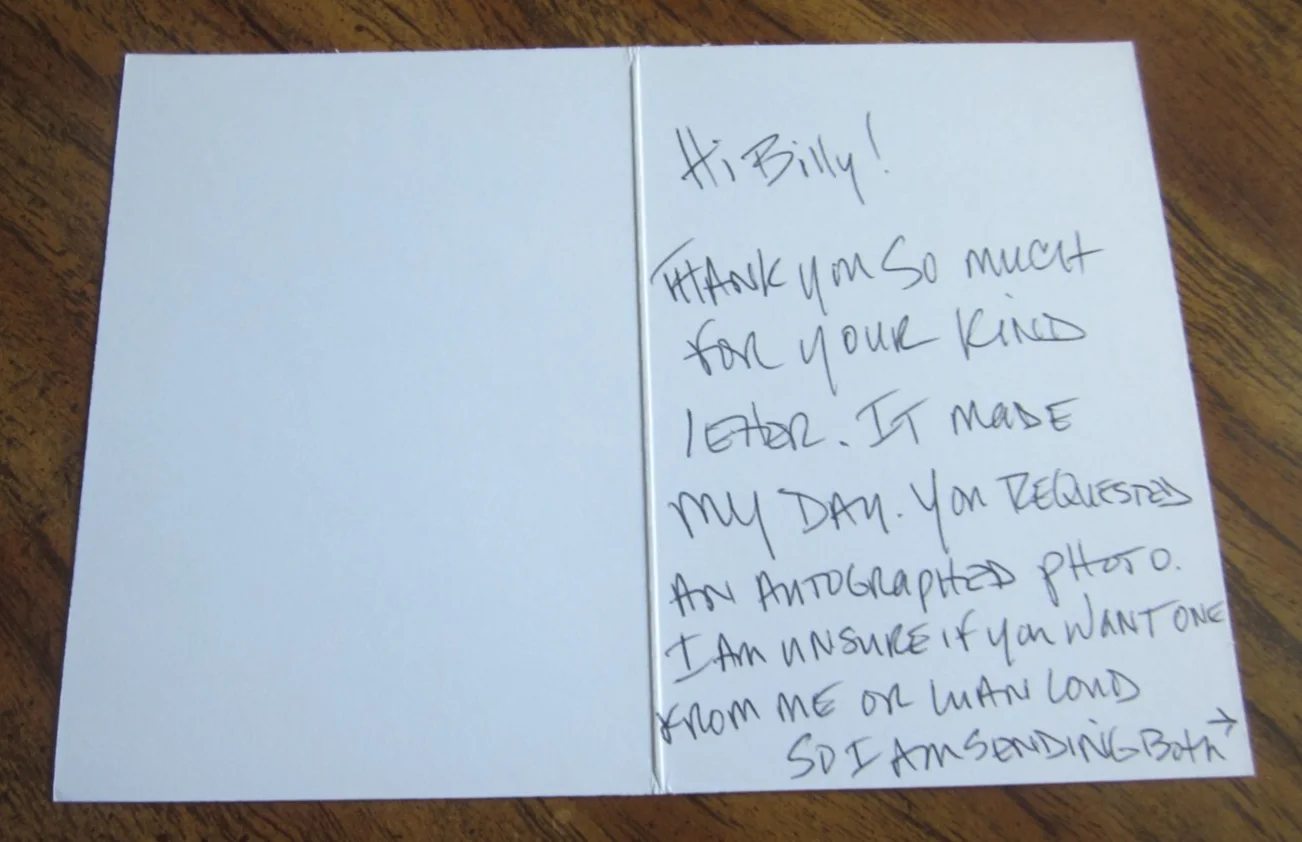 Hi Billy!
THANK you So much
for your KIND
letter. IT made
MY DAY. You REQUESTED
AN AUTOGRAPHED pHOTO.
I AM UNSURE if you WANT ONE
FROM ME OR LUAN LOUD
SO I AM SENDING Both →